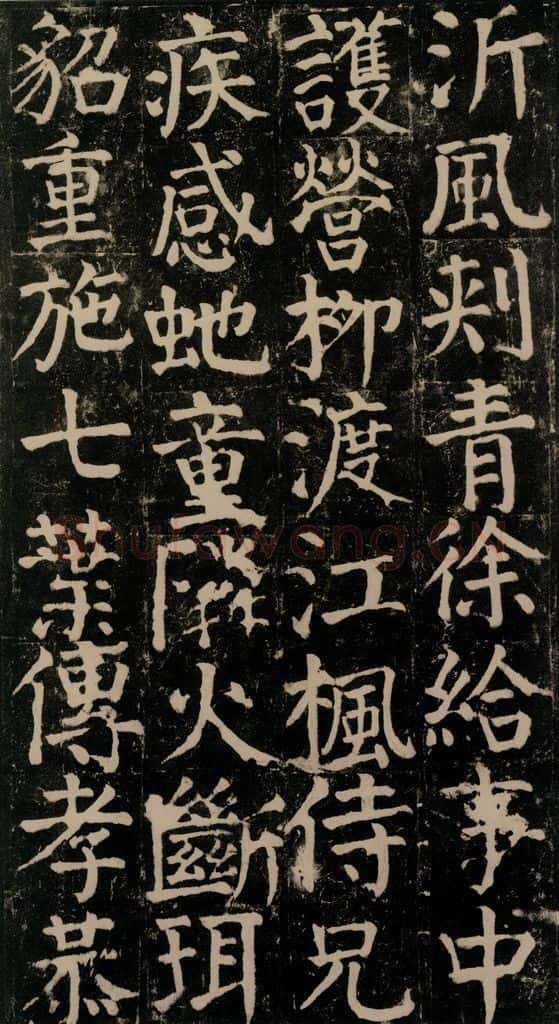 沂風刾青徐給事中
護營柳渡江楓侍兄
疾感虵童隣火斷珥
貂重施七葉傳孝恭
Shufawang.cn